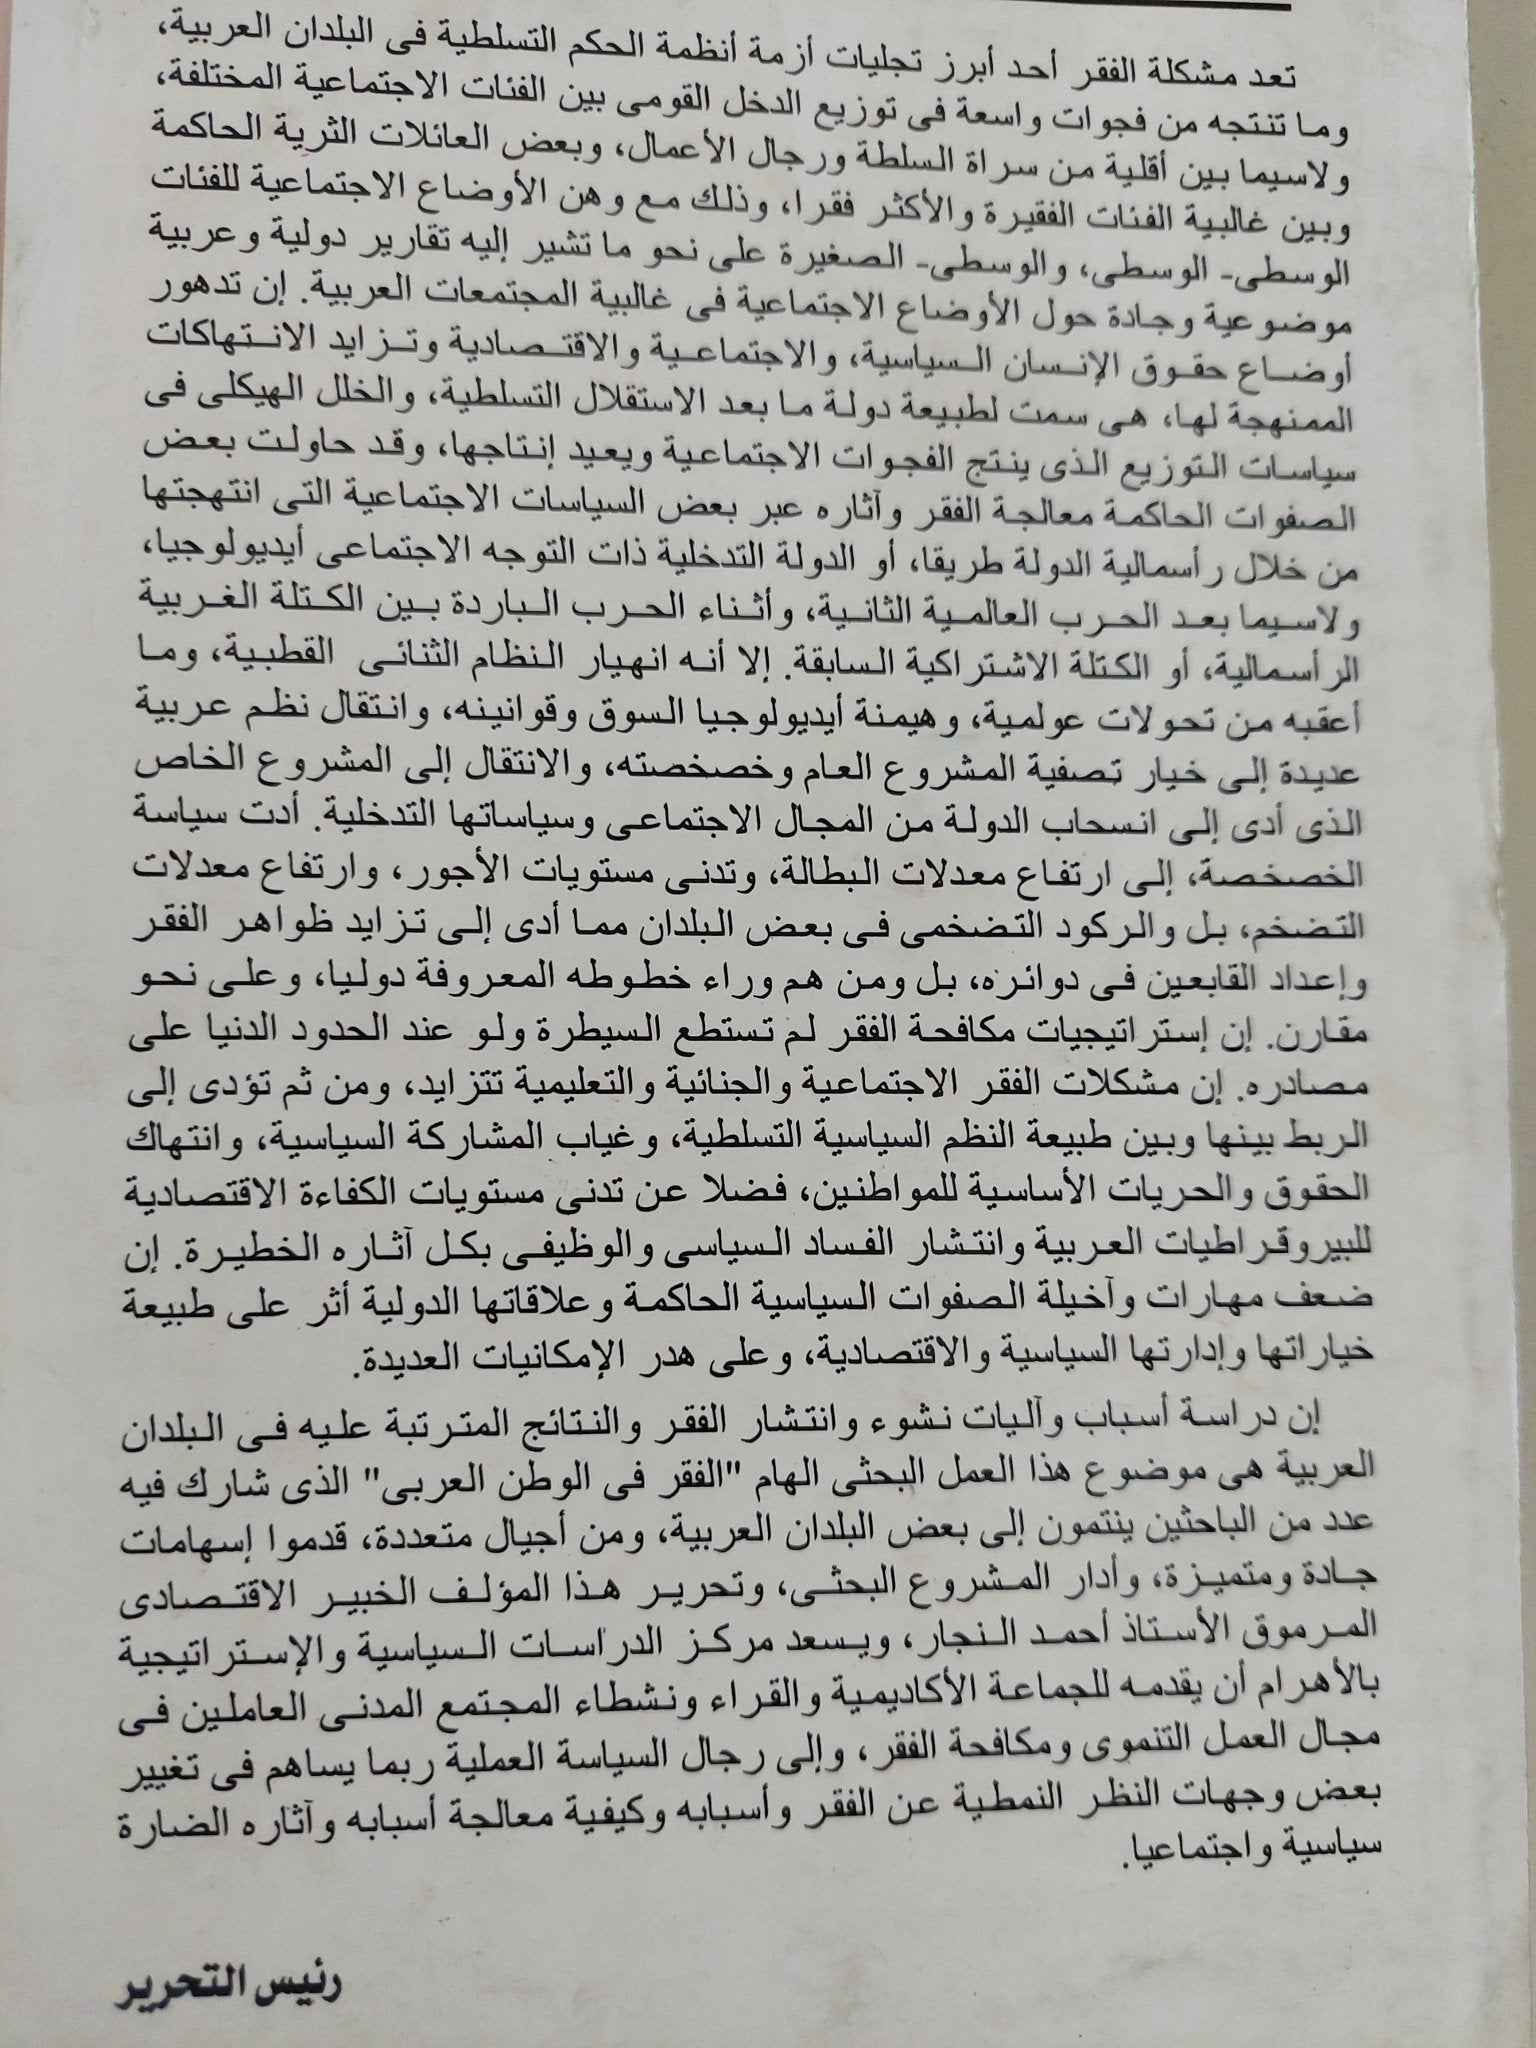 تعد مشكلة الفقر أحد أبرز تجليات أزمة أنظمة الحكم التسلطية فى البلدان العربية،
وما تنتجه من فجوات واسعة فى توزيع الدخل القومى بين الفئات الاجتماعية المختلفة،
ولاسيما بين أقلية من سراة السلطة ورجال الأعمال، وبعض العائلات الثرية الحاكمة
وبين غالبية الفئات الفقيرة والأكثر فقرا، وذلك مع وهن الأوضاع الاجتماعية للفئات
الوسطى- الوسطى، والوسطى- الصغيرة على نحو ما تشير إليه تقارير دولية وعربية
موضوعية وجادة حول الأوضاع الاجتماعية فى غالبية المجتمعات العربية. إن تدهور
أوضاع حقوق الإنسان السياسية، والاجتماعية والاقتصادية وتزايد الانتهاكات
الممنهجة لها، هى سمت لطبيعة دولة ما بعد الاستقلال التسلطية، والخلل الهيكلى فى
سياسات التوزيع الذى ينتج الفجوات الاجتماعية ويعيد إنتاجها، وقد حاولت بعض
الصفوات الحاكمة معالجة الفقر وآثاره عبر بعض السياسات الاجتماعية التى انتهجتها
من خلال رأسمالية الدولة طريقا، أو الدولة التدخلية ذات التوجه الاجتماعى أيديولوجيا،
ولاسيما بعد الحرب العالمية الثانية، وأثناء الحرب الباردة بين الكتلة الغربية
الرأسمالية، أو الكتلة الاشتراكية السابقة. إلا أنه انهيار النظام الثنائى القطبية، وما
أعقبه من تحولات عولمية، وهيمنة أيديولوجيا السوق وقوانينه، وانتقال نظم عربية
عديدة إلى خيار تصفية المشروع العام وخصخصته، والانتقال إلى المشروع الخاص
الذى أدى إلى انسحاب الدولة من المجال الاجتماعى وسياساتها التدخلية. أدت سياسة
الخصخصة، إلى ارتفاع معدلات البطالة، وتدنى مستويات الأجور، وارتفاع معدلات
التضخم، بل والركود التضخمى فى بعض البلدان مما أدى إلى تزايد ظواهر الفقر
وإعداد القابعين فى دوائره، بل ومن هم وراء خطوطه المعروفة دوليا، وعلى نحو
مقارن. إن إستراتيجيات مكافحة الفقر لم تستطع السيطرة ولو عند الحدود الدنيا على
مصادره. إن مشكلات الفقر الاجتماعية والجنائية والتعليمية تتزايد، ومن ثم تؤدى إلى
الربط بينها وبين طبيعة النظم السياسية التسلطية، وغياب المشاركة السياسية، وانتهاك
الحقوق والحريات الأساسية للمواطنين، فضلا عن تدنى مستويات الكفاءة الاقتصادية
للبيروقراطيات العربية وانتشار الفساد السياسى والوظيفى بكل آثاره الخطيرة. إن
ضعف مهارات وآخيلة الصفوات السياسية الحاكمة وعلاقاتها الدولية أثر على طبيعة
خياراتها وإدارتها السياسية والاقتصادية، وعلى هدر الإمكانيات العديدة.
إن دراسة أسباب وآليات نشوء وانتشار الفقر والنتائج المترتبة عليه فى البلدان
العربية هى موضوع هذا العمل البحثى الهام "الفقر فى الوطن العربى" الذى شارك فيه
عدد من الباحثين ينتمون إلى بعض البلدان العربية، ومن أجيال متعددة، قدموا إسهامات
جادة ومتميزة، وأدار المشروع البحثى، وتحرير هذا المؤلف الخبير الاقتصادى
المرموق الأستاذ أحمد النجار، ويسعد مركز الدراسات السياسية والإستراتيجية
بالأهرام أن يقدمه للجماعة الأكاديمية والقراء ونشطاء المجتمع المدنى العاملين فى
مجال العمل التنموى ومكافحة الفقر، وإلى رجال السياسة العملية ربما يساهم فى تغيير
بعض وجهات النظر النمطية عن الفقر وأسبابه وكيفية معالجة أسبابه وآثاره الضارة
سياسية واجتماعيا.
رئيس التحرير